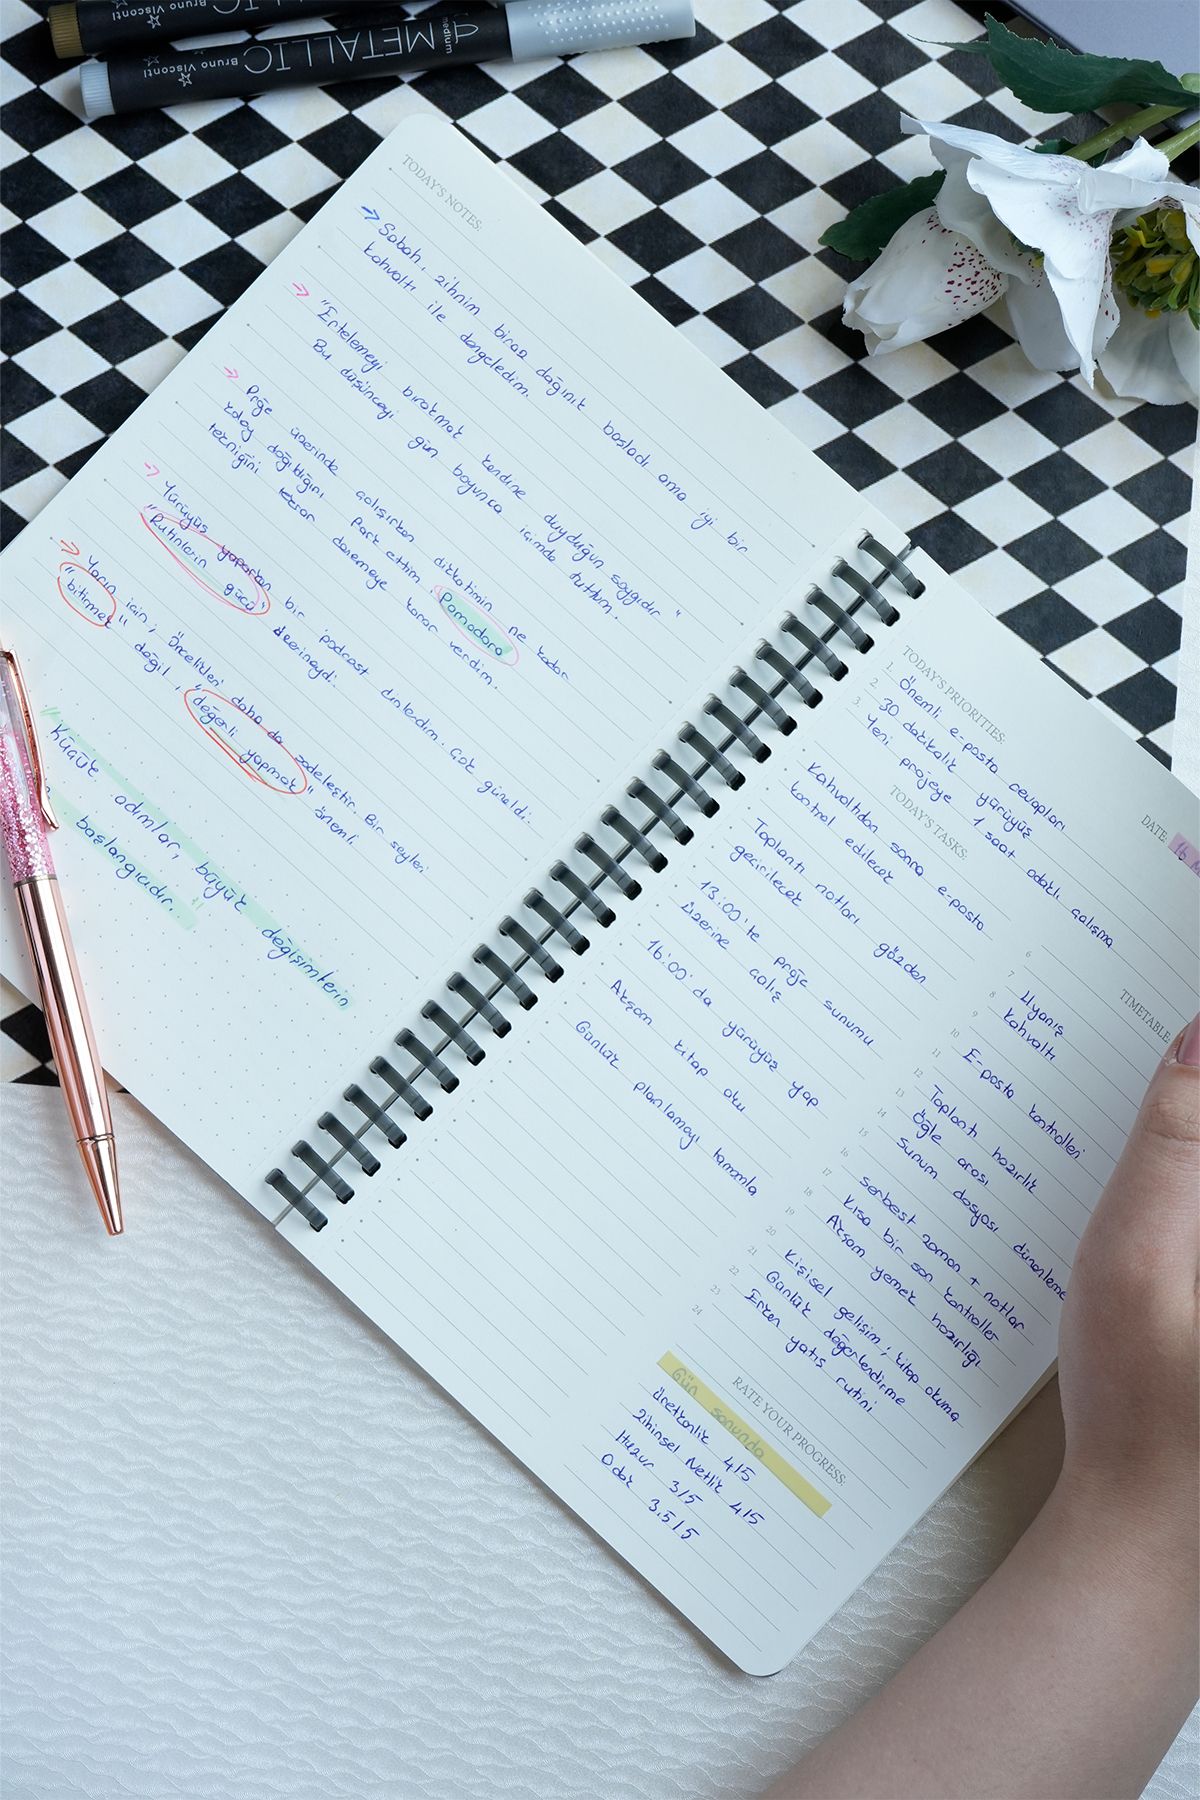 METALLIC
Bruno Visconti
METALLIC
Bruno Visconti
medium
TODAY'S NOTES:
→ Sabah, zihnim biraz dağınık başladı ama iyi bir
kahvaltı ile dengeledim.
→ "Ertelemeyi bırakmak kendine duyduğun saygıdır"
Bu düşünceyi gün boyunca içimde tuttum.
→ Proje üzerinde çalışırken dikkatimin ne kadar
kolay dağıldığını Park ettim, Pomodoro
tekniğini tekrar denemeye karar verdim.
→ Yürüyüş yaparken bir podcast dinledim. Çok güzeldi.
"Rutinlerin gücü" üzerineydi.
→ Yarın için; Öncelikleri daha da sadeleştir. Bir şeyleri
"bitirmek" değil, "değerli yapmak" önemli
"Küçük adımlar, büyük değişimlerin
başlangıcıdır.."
DATE: 16
TODAY'S PRIORITIES:
1. Önemli e-posta cevapları
2. 30 dakikalık yürüyüş
3. Yeni projeye 1 saat odaklı çalışma
TODAY'S TASKS:
Kahvaltıdan sonra e-posta
kontrol edilecek
Toplantı notları gözden
geçirilecek
13:00'te proje sunumu
üzerine çalış
16:00'da yürüyüş yap
Akşam kitap oku
Günlük planlamayı tamamla
TIMETABLE:
6
7 Uyanış
8 Kahvaltı
9
10 E-posta kontrolleri
11
12 Toplantı hazırlık
13 Öğle arası
14 Sunum dosyası düzenleme
15
16 Serbest zaman + notlar
17 Kısa bir son kontroller
18 Akşam yemek hazırlığı
19
20 Kişisel gelişim; kitap okuma
21 Günlük değerlendirme
22 Erken yatış rutini
23
24
RATE YOUR PROGRESS:
Gün sonunda
Üretkenlik 4/5
Zihinsel Netlik 4/5
Huzur 3/5
Odak 3.5/5